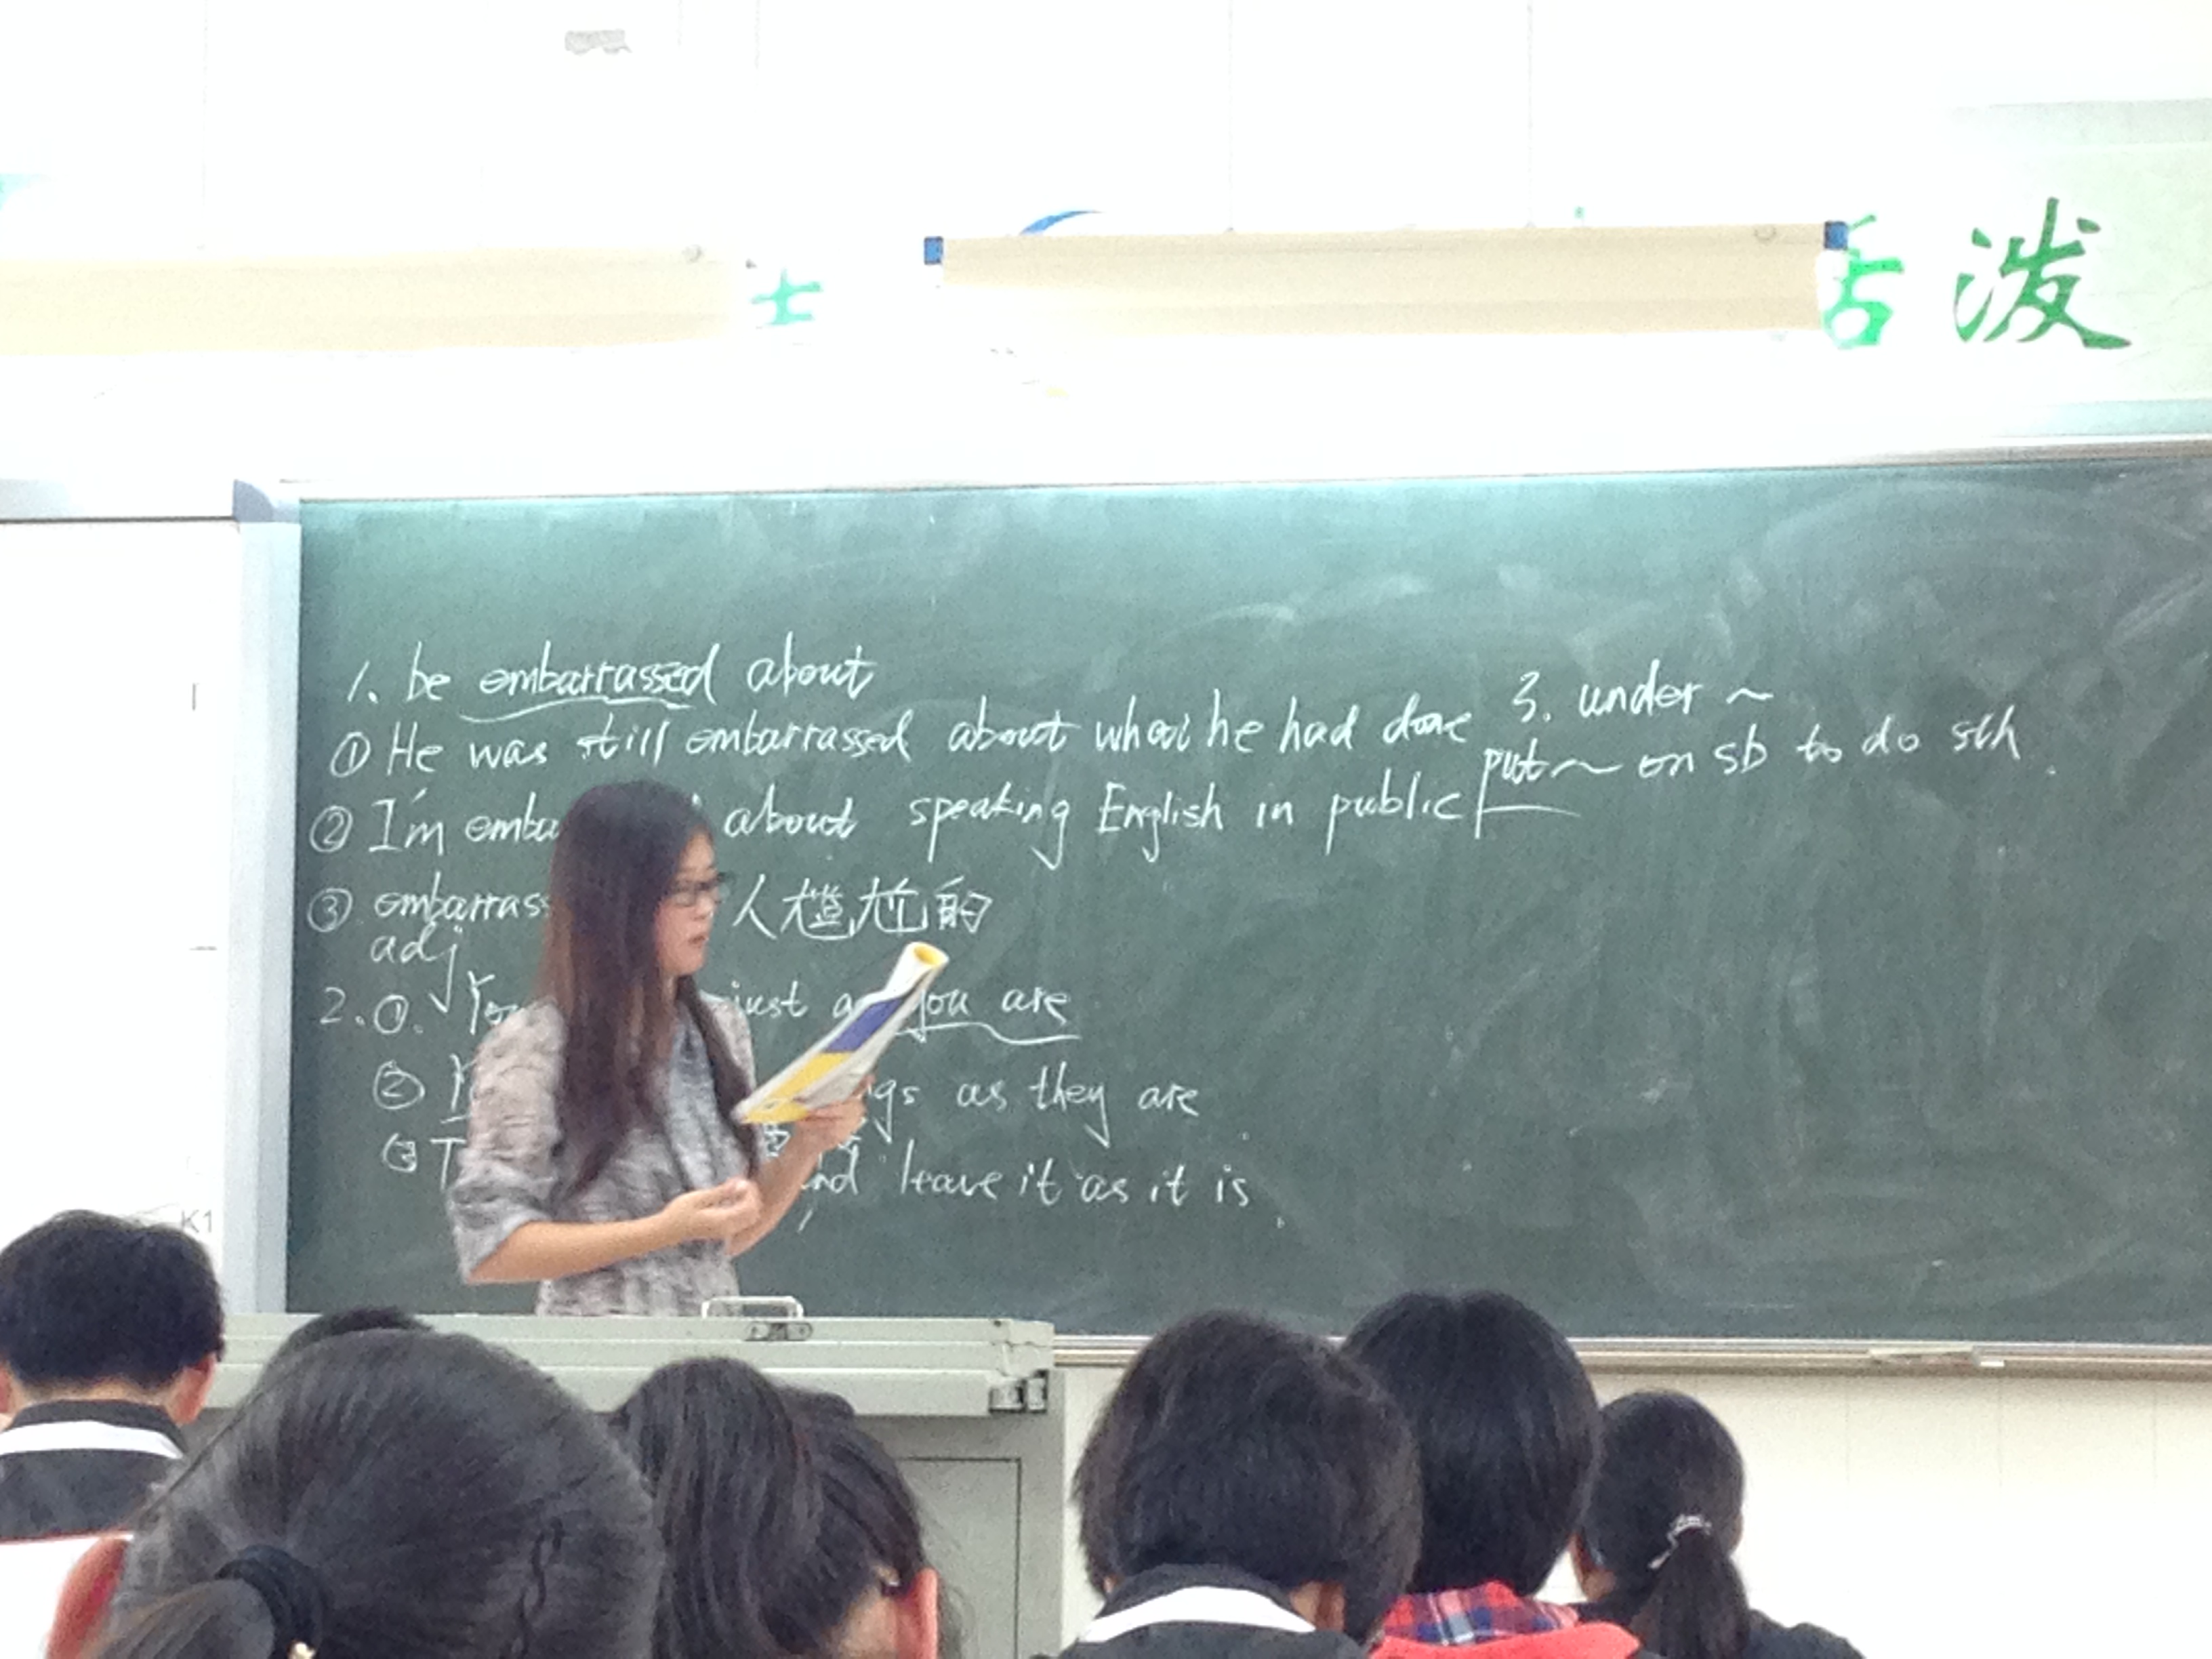 活泼
1. be embarrassed about
① He was still embarrassed about what he had done
② I'm about speaking English in public
③ 人尴尬的
adj
2. ① just you are
② as they are
③ and leave it as it is.
3. under ~
put ~ on sb to do sth.
K1